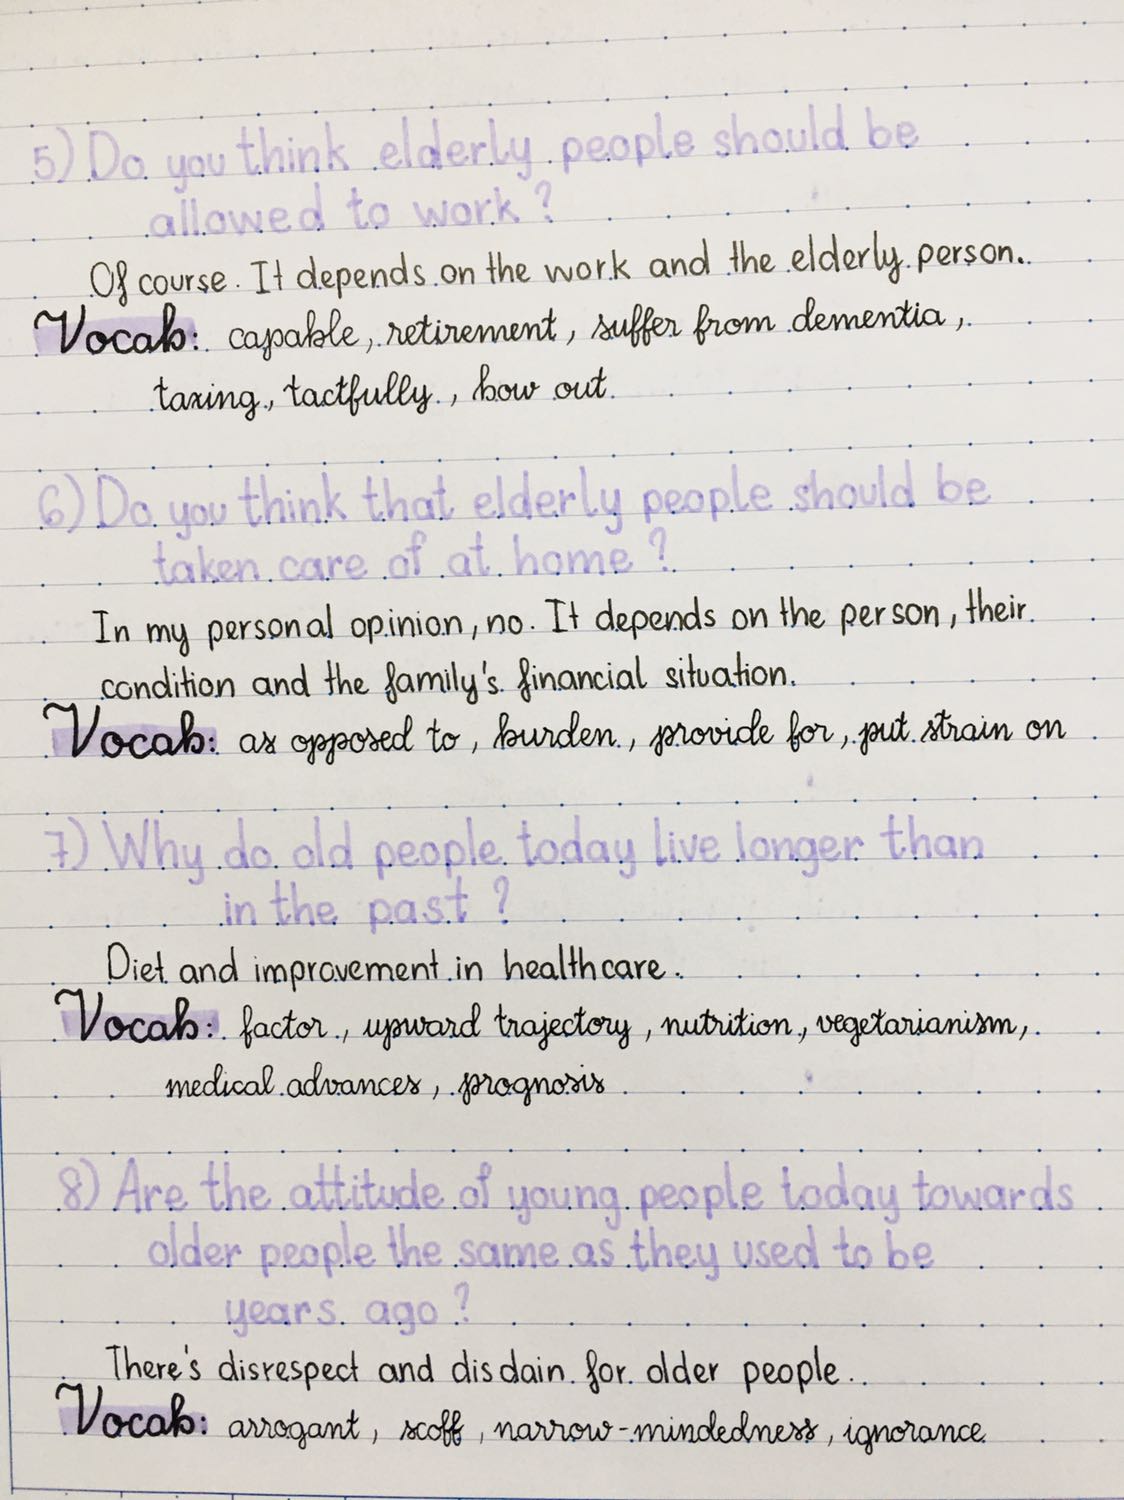 5) Do you think elderly people should be
allowed to work?
Of course. It depends on the work and the elderly person.
Vocab: capable, retirement, suffer from dementia,
taxing, tactfully, bow out.
6) Do you think that elderly people should be
taken care of at home?
In my personal opinion, no. It depends on the person, their
condition and the family's financial situation.
Vocab: as opposed to, burden, provide for, put strain on
7) Why do old people today live longer than
in the past?
Diet and improvement in healthcare.
Vocab: factor, upward trajectory, nutrition, vegetarianism,
medical advances, prognosis
8) Are the attitude of young people today towards
older people the same as they used to be
years ago?
There's disrespect and disdain for older people.
Vocab: arrogant, scoff, narrow-mindedness, ignorance